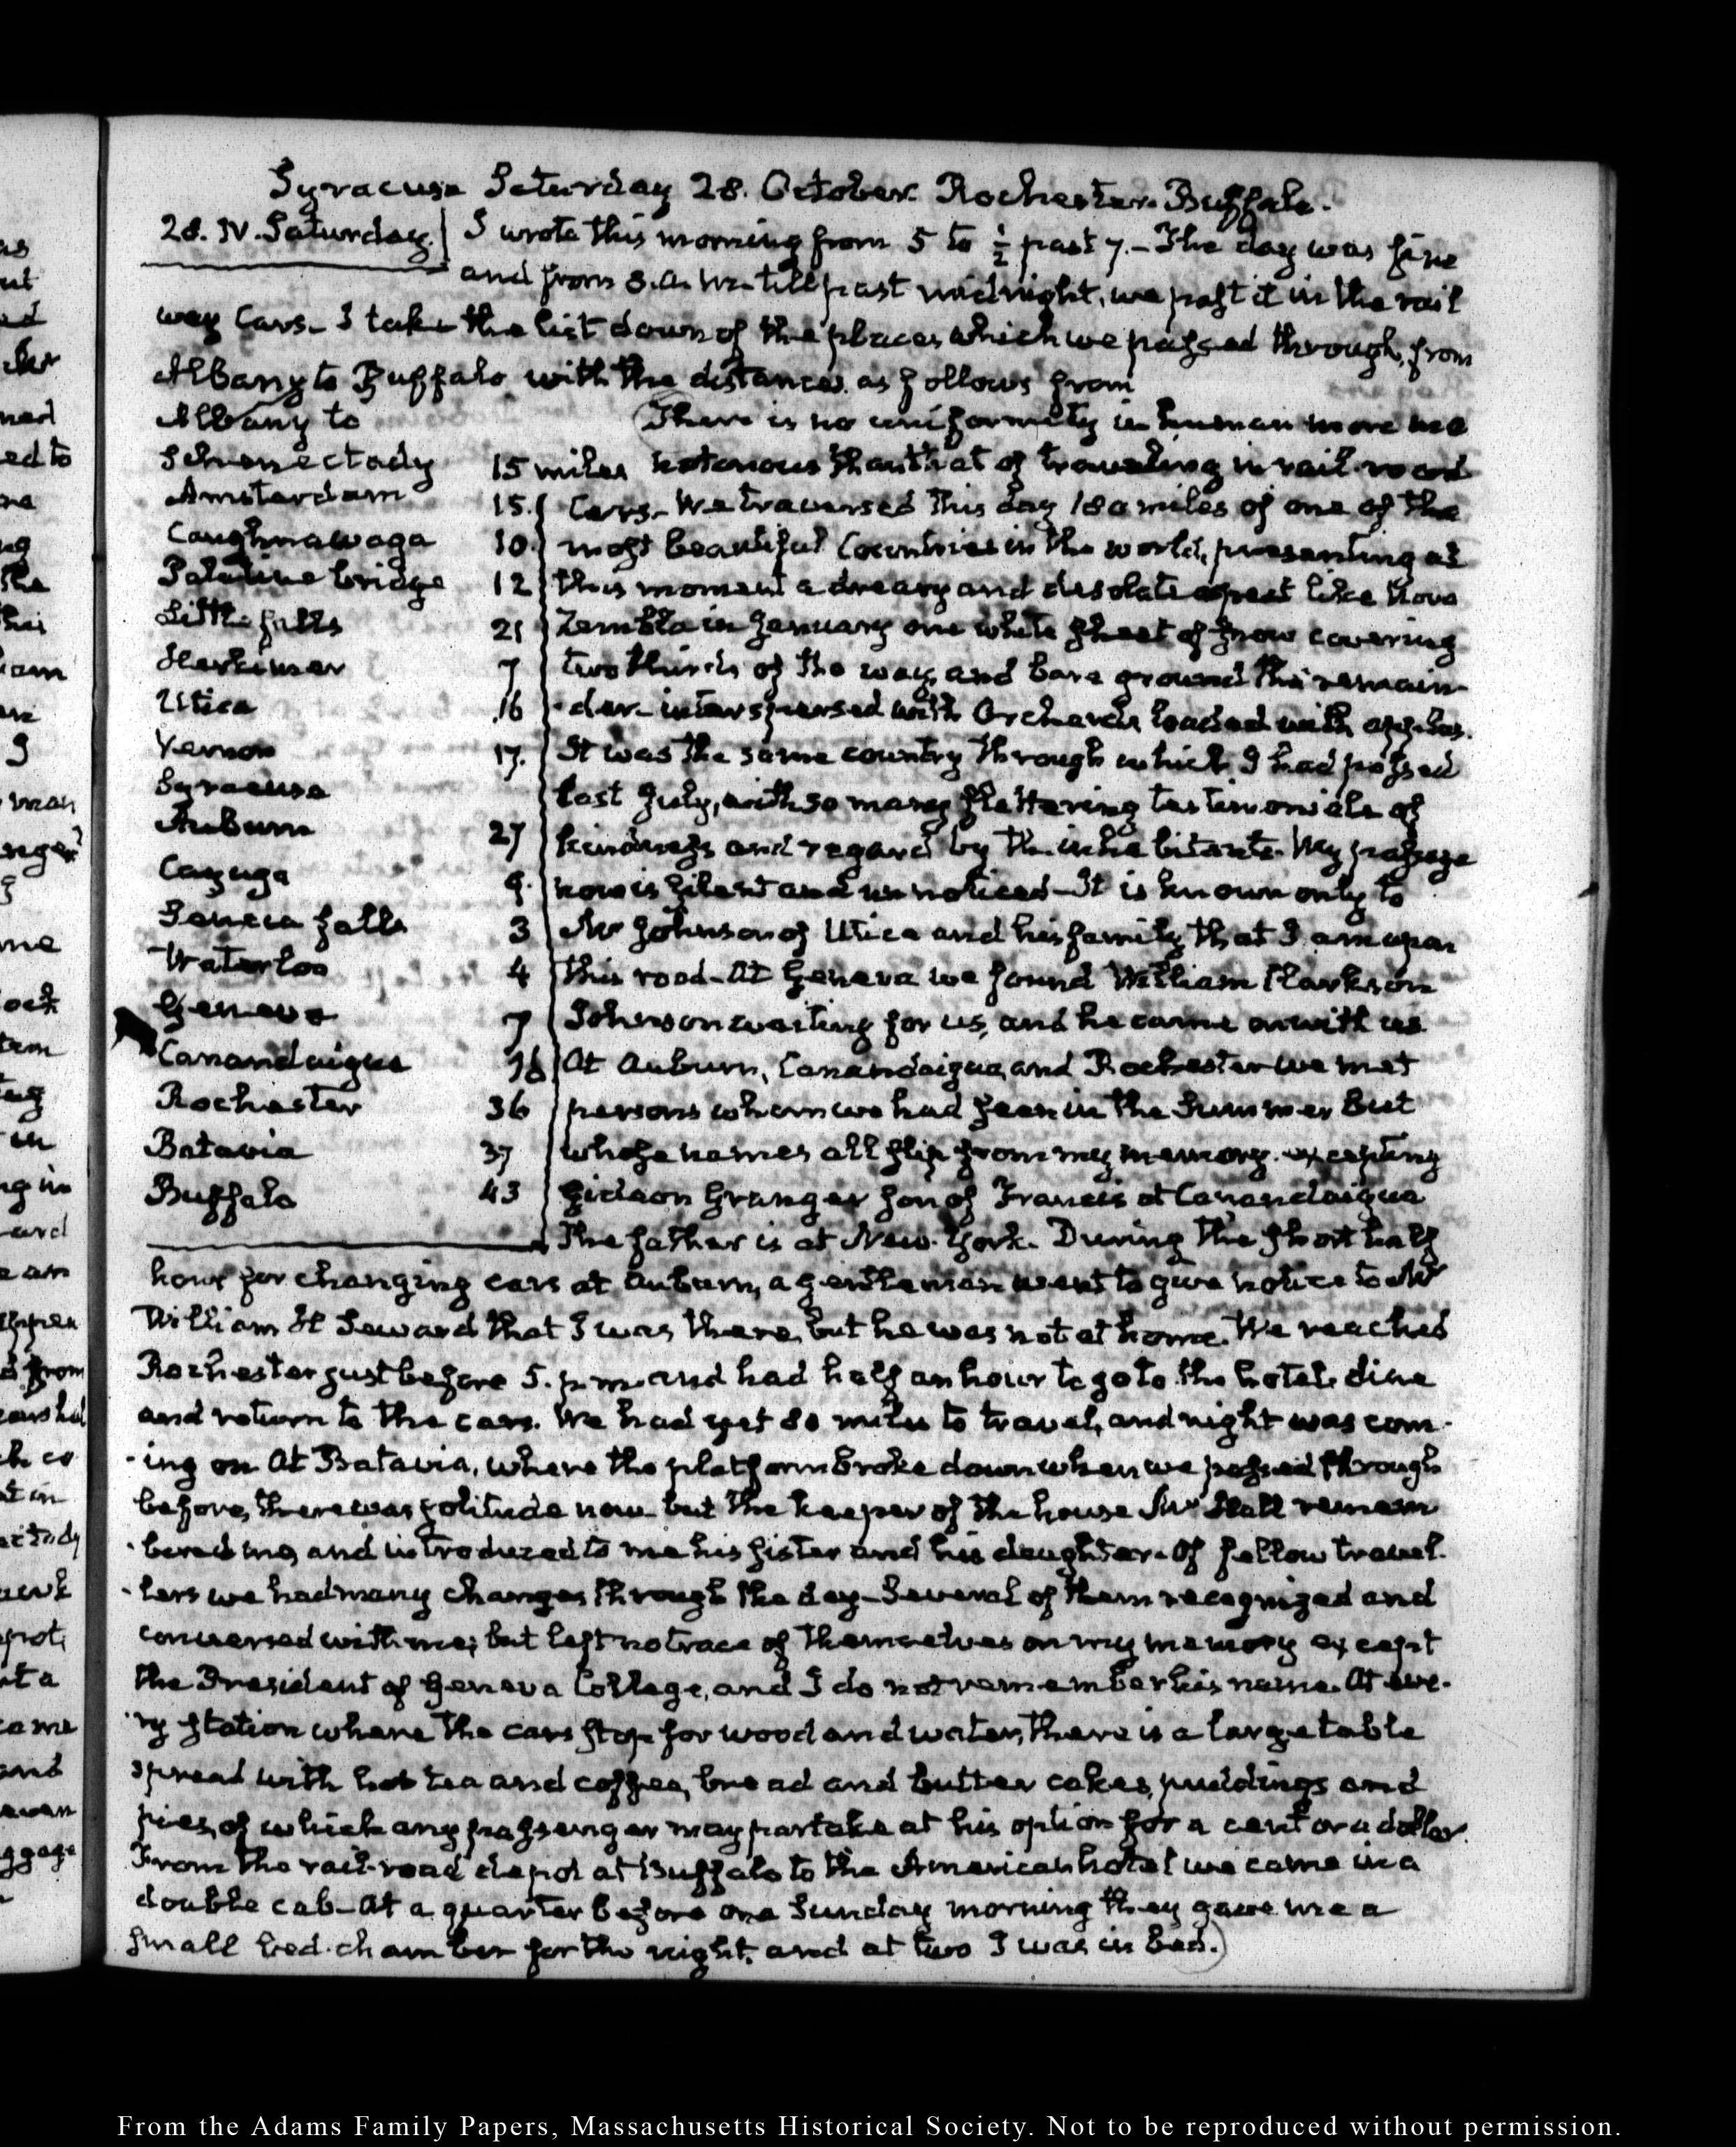 Syracuse Saturday 28. October. Rochester. Buffalo.
28. IV. Saturday. I wrote this morning from 5 to ½ past 7.— The day was fine
and from 8. a.m. till past midnight, we past it in the rail
way Cars— I take the list down of the places which we passed through, from
Albany to Buffalo with the distances as follows from
Albany to There is no uniformity in human more mo
Schenectady 15 miles notonous than that of travelling in rail-road
Amsterdam 15. Cars— We traversed this day 180 miles of one of the
Caughnawaga 10. most beautiful Countries in the world, presenting at
Palatine bridge 12 this moment a dreary and desolate aspect like Nova
Little falls 21 Zembla in January one white sheet of snow covering
Herkimer 7 two thirds of the way, and bare ground the remain-
Utica 16 -der- interspersed with Orchards loaded with apples.
Vernon 17. It was the same country through which I had passed
Syracuse last July, with so many flattering testimonials of
Auburn 27 kindness and regard by the inhabitants. My passage
Cayuga 9. now is silent and unnoticed— It is known only to
Seneca falls 3 Mr Johnson of Utica and his family that I am upon
Waterloo 4 this road— At Geneva we found William Clarkson
Geneva 7 Johnson waiting for us, and he came on with us
Canandaigua 16 At Auburn, Canandaigua, and Rochester we met
Rochester 36 persons whom we had seen in the Summer But
Batavia 37 whose names all slip from my memory. excepting
Buffalo 43 Gideon Granger son of Francis at Canandaigua
The father is at New-York. During the short half
hour for changing cars at Auburn, a gentleman went to give notice to Mr
William H Seward that I was there, but he was not at home. We reached
Rochester just before 5. p.m. and had half an hour to go to the hotel dine
and return to the cars. We had yet 80 miles to travel, and night was com-
-ing on At Batavia, where the platform broke down when we passed through
before, there was solitude now— but the keeper of the house Mr Hall remem
-bered me, and introduced to me his sister and his daughter— Of fellow travel-
-lers we had many changes through the day— Several of them recognized and
conversed with me; but left no trace of themselves on my memory except
the President of Geneva College, and I do not remember his name. At eve-
-ry station where the cars stop for wood and water, there is a large table
spread with hot tea and coffee, bread and butter cakes, puddings and
pies, of which any passenger may partake at his option for a cent or a dollar.
From the rail-road depot at Buffalo to the American hotel we came in a
double cab— At a quarter before one Sunday morning they gave me a
small bed-chamber for the night, and at two I was in bed.)
From the Adams Family Papers, Massachusetts Historical Society. Not to be reproduced without permission.